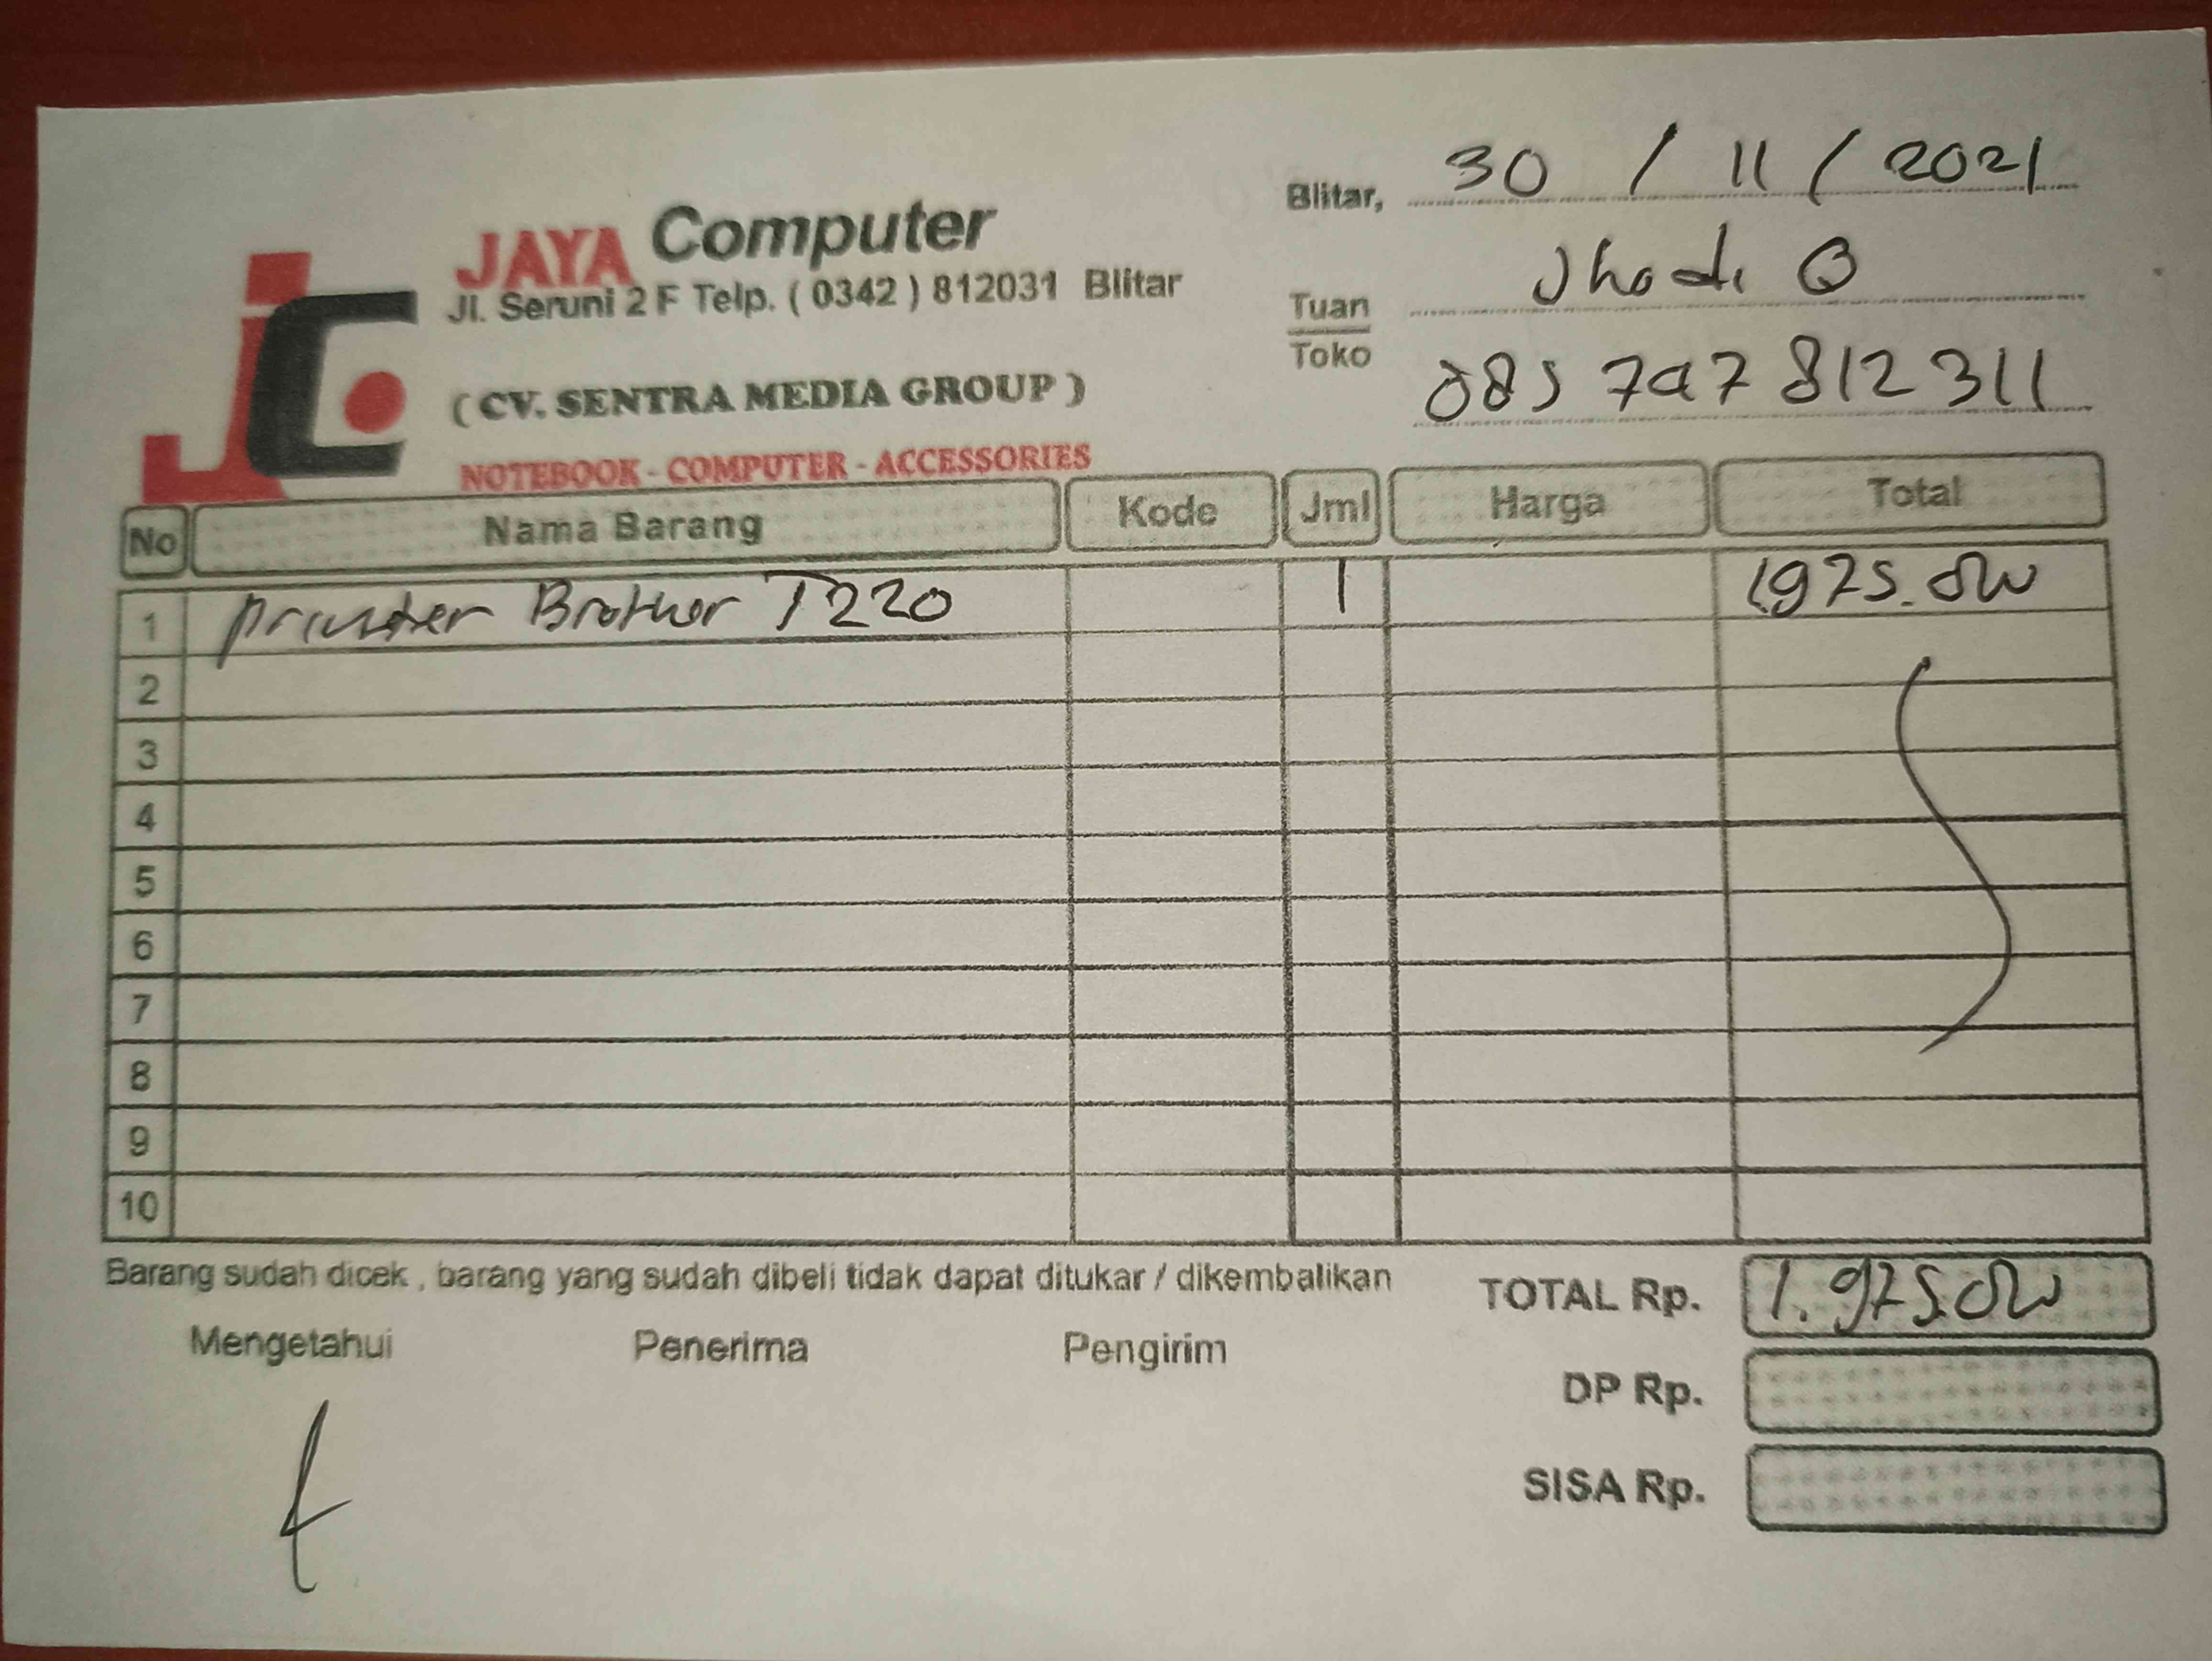 JAYA Computer
Jl. Seruni 2 F Telp. ( 0342 ) 812031 Blitar
( CV. SENTRA MEDIA GROUP )
NOTEBOOK - COMPUTER - ACCESSORIES
Blitar, 30 / 11 / 2021
Tuan
Toko
Jhodi Q
085 797 812 311
No Nama Barang Kode Jml Harga Total
1 Printer Brother T220 1 1.975.000
2
3
4
5
6
7
8
9
10
Barang sudah dicek , barang yang sudah dibeli tidak dapat ditukar / dikembalikan
TOTAL Rp. 1.975.000
Mengetahui Penerima Pengirim
DP Rp.
SISA Rp.